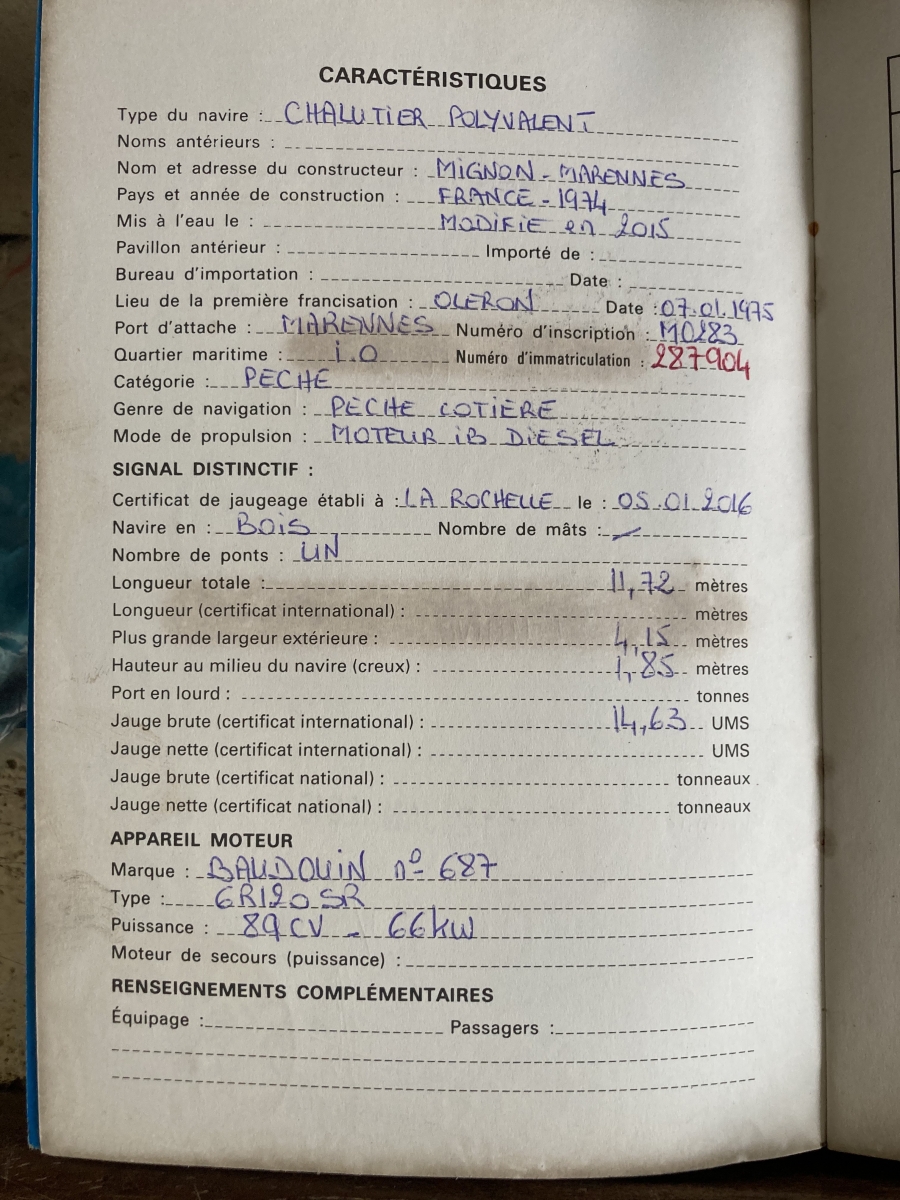 CARACTÉRISTIQUES
Type du navire : CHALUTIER POLYVALENT
Noms antérieurs :
Nom et adresse du constructeur : MIGNON - MARENNES
Pays et année de construction : FRANCE - 1974
Mis à l'eau le : MODIFIE en 2015
Pavillon antérieur : Importé de :
Bureau d'importation : Date :
Lieu de la première francisation : OLERON Date : 07.01.1975
Port d'attache : MARENNES Numéro d'inscription : M0283
Quartier maritime : i.O Numéro d'immatriculation : 287904
Catégorie : PECHE
Genre de navigation : PECHE COTIERE
Mode de propulsion : MOTEUR iB DiESEL
SIGNAL DISTINCTIF :
Certificat de jaugeage établi à : LA ROCHELLE le : 05.01.2016
Navire en : BOiS Nombre de mâts : /
Nombre de ponts : UN
Longueur totale : 11,72 mètres
Longueur (certificat international) : mètres
Plus grande largeur extérieure : 4,15 mètres
Hauteur au milieu du navire (creux) : 1,85 mètres
Port en lourd : tonnes
Jauge brute (certificat international) : 14,63 UMS
Jauge nette (certificat international) : UMS
Jauge brute (certificat national) : tonneaux
Jauge nette (certificat national) : tonneaux
APPAREIL MOTEUR
Marque : BAUDOUIN n° 687
Type : 6R120SR
Puissance : 89 CV - 66 kW
Moteur de secours (puissance) :
RENSEIGNEMENTS COMPLÉMENTAIRES
Équipage : Passagers :